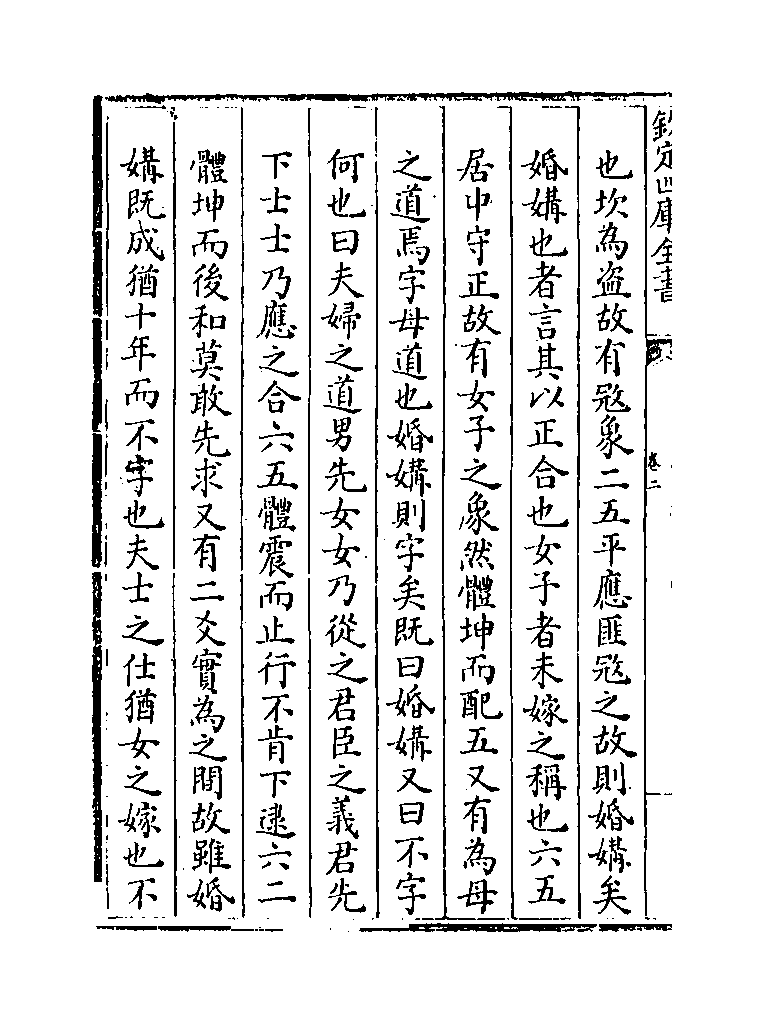 欽定四庫全書
卷二
也坎為盗故有宼象二五平應匪宼之故則婚媾矣
婚媾也者言其以正合也女子者未嫁之稱也六五
居中守正故有女子之象然體坤而配五又有為母
之道焉字母道也婚媾則字矣既曰婚媾又曰不字
何也曰夫婦之道男先女女乃從之君臣之義君先
下士士乃應之合六五體震而止行不肯下逮六二
體坤而後和莫敢先求又有二爻實為之間故雖婚
媾既成猶十年而不字也夫士之仕猶女之嫁也不